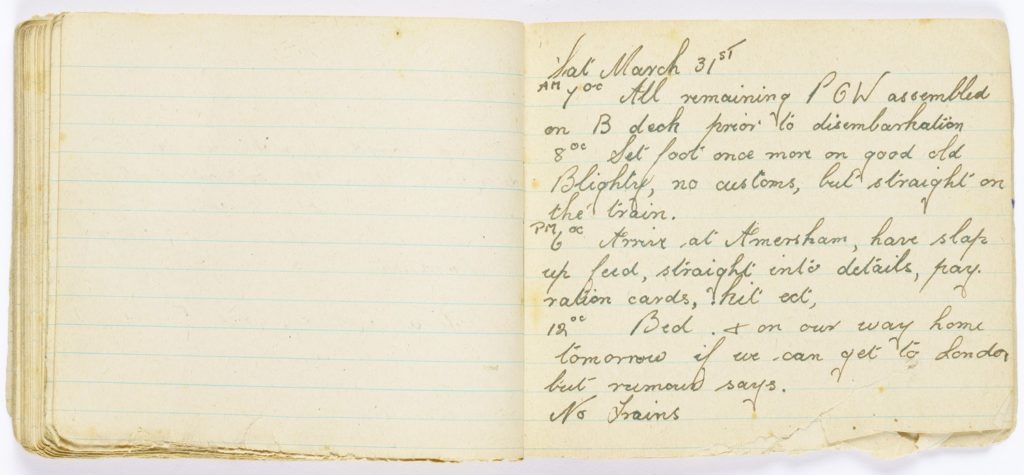 Sat March 31ST
AM 7 oc All remaining P O W assembled
on B deck prior to disembarkation
8 oc Set foot once more on good old
Blighty, no customs, but straight on
the train.
PM 6 oc Arrive at Amersham, have slap
up feed, straight into details, pay
ration cards, kit ect,
12 oc Bed . & on our way home
tomorrow if we can get to London
but rumour says.
No Trains